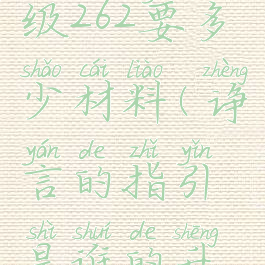 级262要多
shǎo cái liào zhèng
少材料(诤
yán de zhǐ yǐn
言的指引
shì shuí de shēng
是谁的